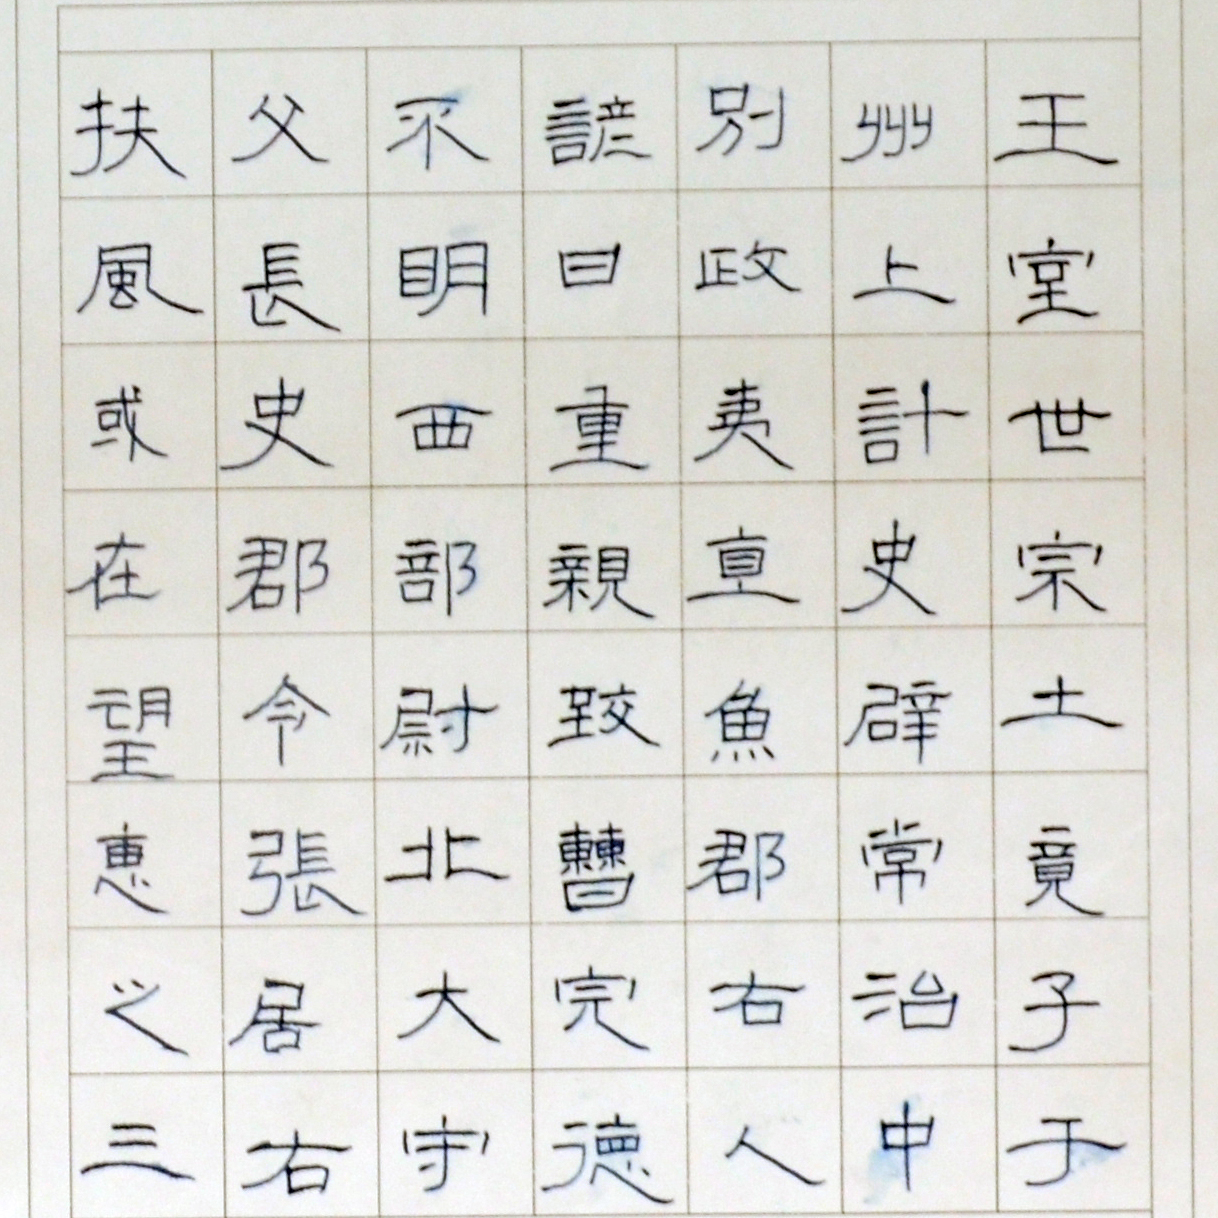 王室世宗土竟子于
州上計史辟常治中
別政夷直魚郡右人
諺曰重親致曹完德
不明西部尉北大守
父長史郡令張居右
扶風或在望惠之三